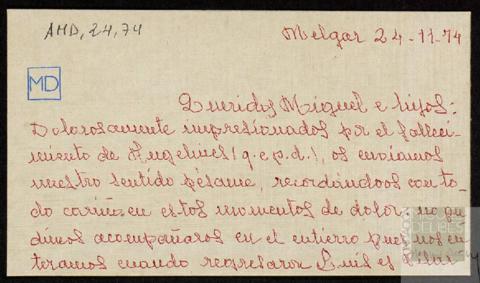 AMD, 24, 74
Melgar 24-11-74
MD
Queridos Miguel e hijos:
Dolorosamente impresionados por el falleci-
miento de Angelines (q.e.p.d.), os enviamos
nuestro sentido pésame, recordándoos con to-
do cariño en estos momentos de dolor no pu-
dimos acompañaros en el entierro pues nos en
teramos cuando regresaron Luis
DELIBES